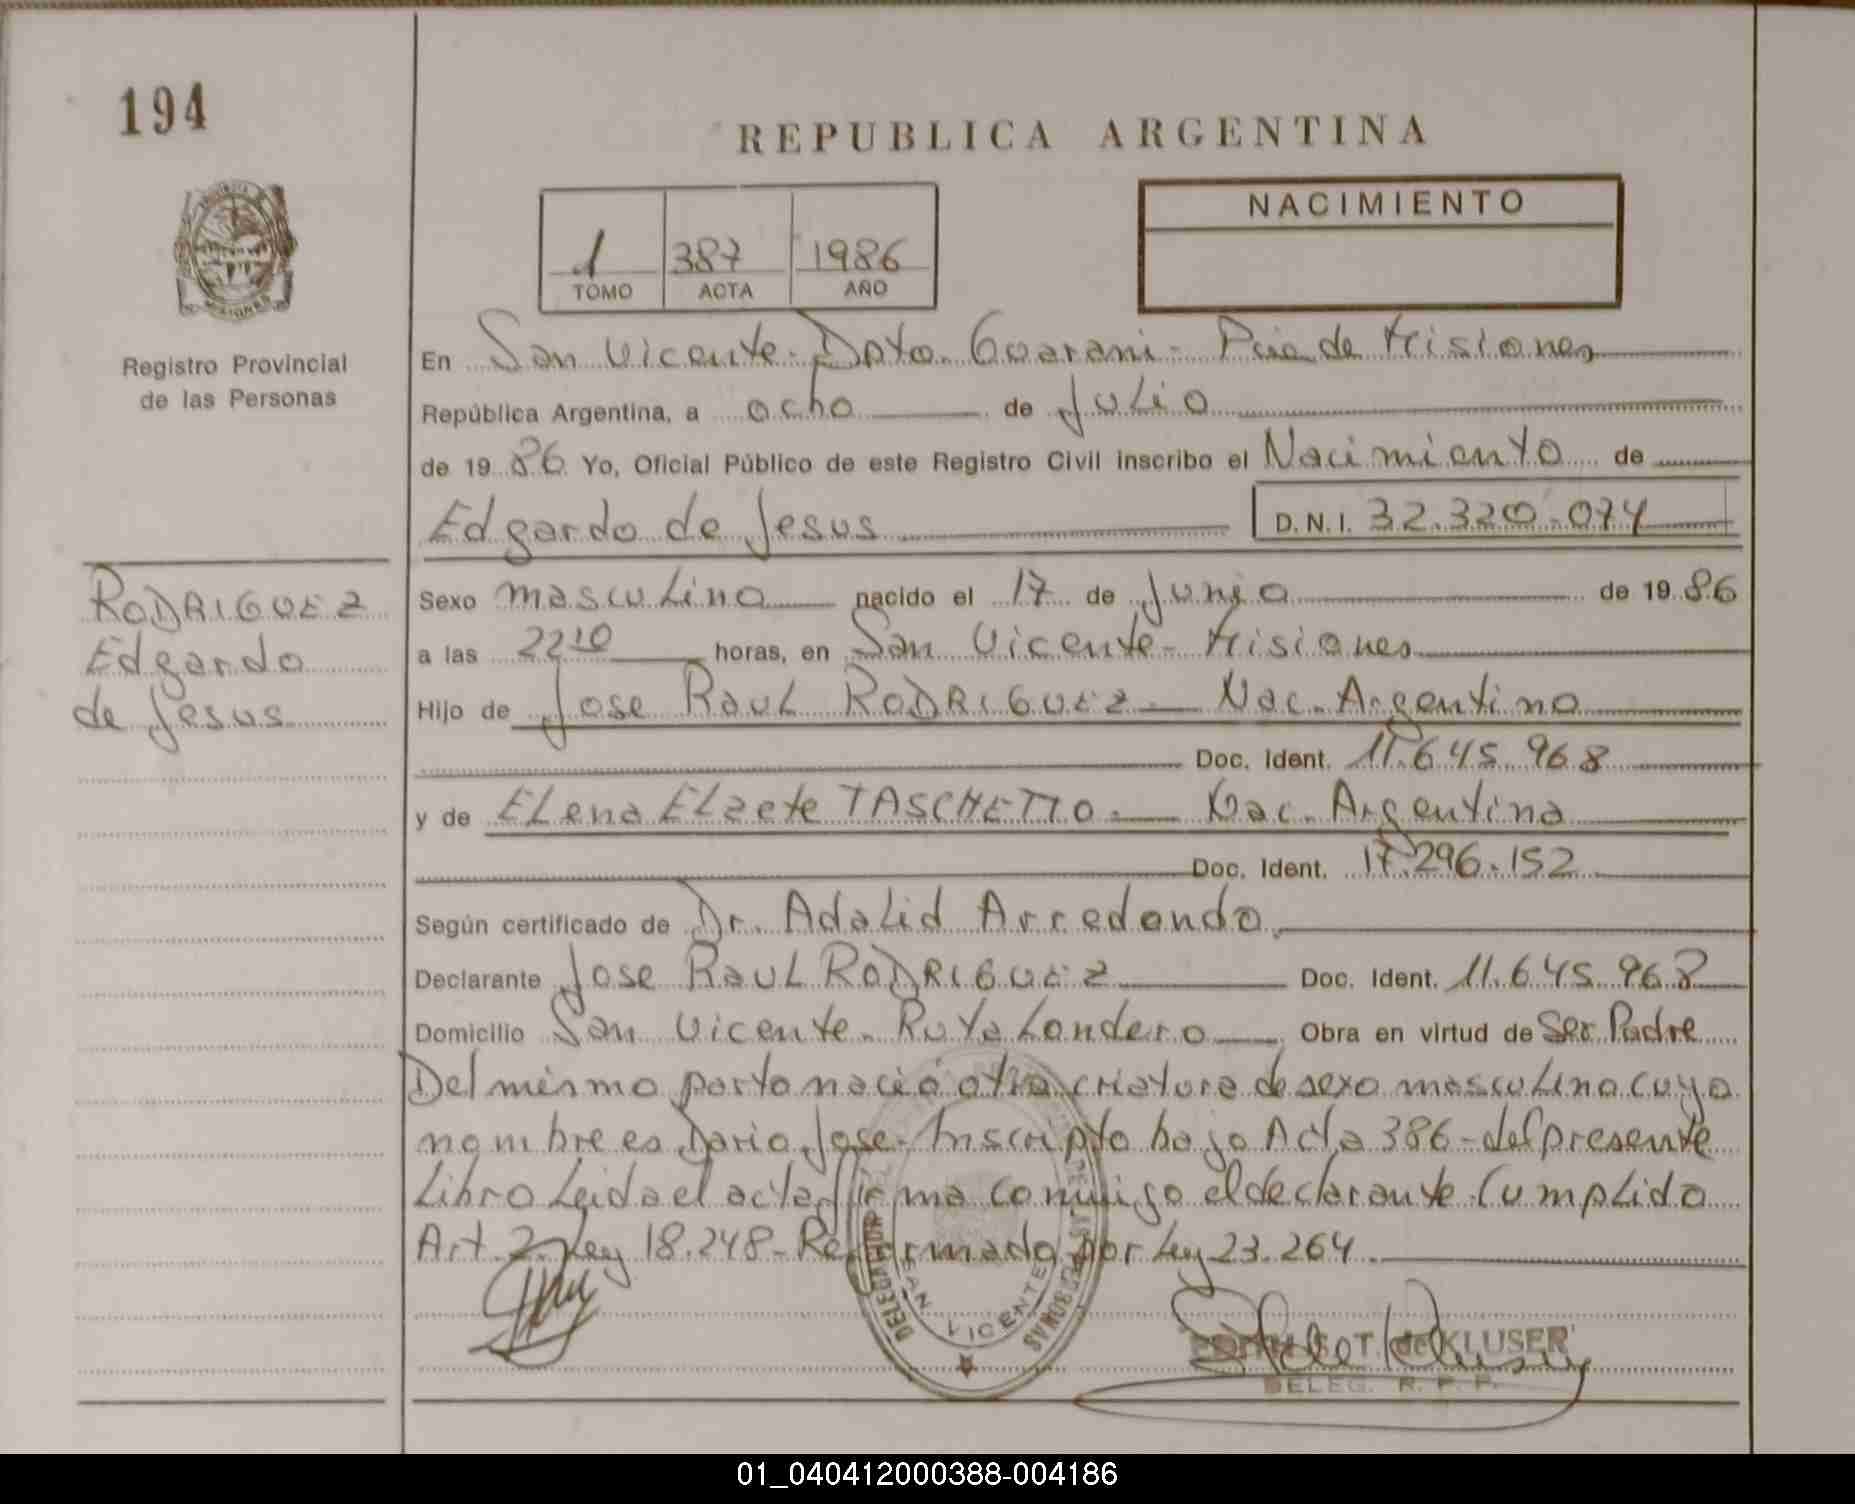 194
REPUBLICA ARGENTINA
NACIMIENTO
1 387 1986
TOMO ACTA AÑO
Registro Provincial
de las Personas
En San Vicente - Dpto. Guarani - Pcia de Misiones
República Argentina, a ocho de Julio
de 1986 Yo, Oficial Público de este Registro Civil inscribo el Nacimiento de
Edgardo de Jesus D.N.I. 32.320.074
RODRIGUEZ
Edgardo
de Jesus
Sexo masculino nacido el 17 de Junio de 1986
a las 22 10 horas, en San Vicente - Misiones
Hijo de Jose Raul RODRIGUEZ - Nac. Argentino
Doc. Ident. 11.645.968
y de Elena Elzete TASCHETTO. Nac. Argentina
Doc. Ident. 17.296.152
Según certificado de Dr. Adalid Arredondo.
Declarante Jose Raul RODRIGUEZ Doc. Ident. 11.645.968
Domicilio San Vicente - Ruta Londero Obra en virtud de Ser Padre
Del mismo parto nació otra criatura de sexo masculino cuyo
nombre es Dario Jose - Inscripto bajo Acta 386 - del presente
Libro Leida el acta firma conmigo el declarante. Cumplido
Art. 2 Ley 18.248 - Reformado por Ley 23.264.
DELEGACION
SAN VICENTE
DE LAS PERSONAS
T. de KLUSER
DELEG. R. P. P.
01_040412000388-004186